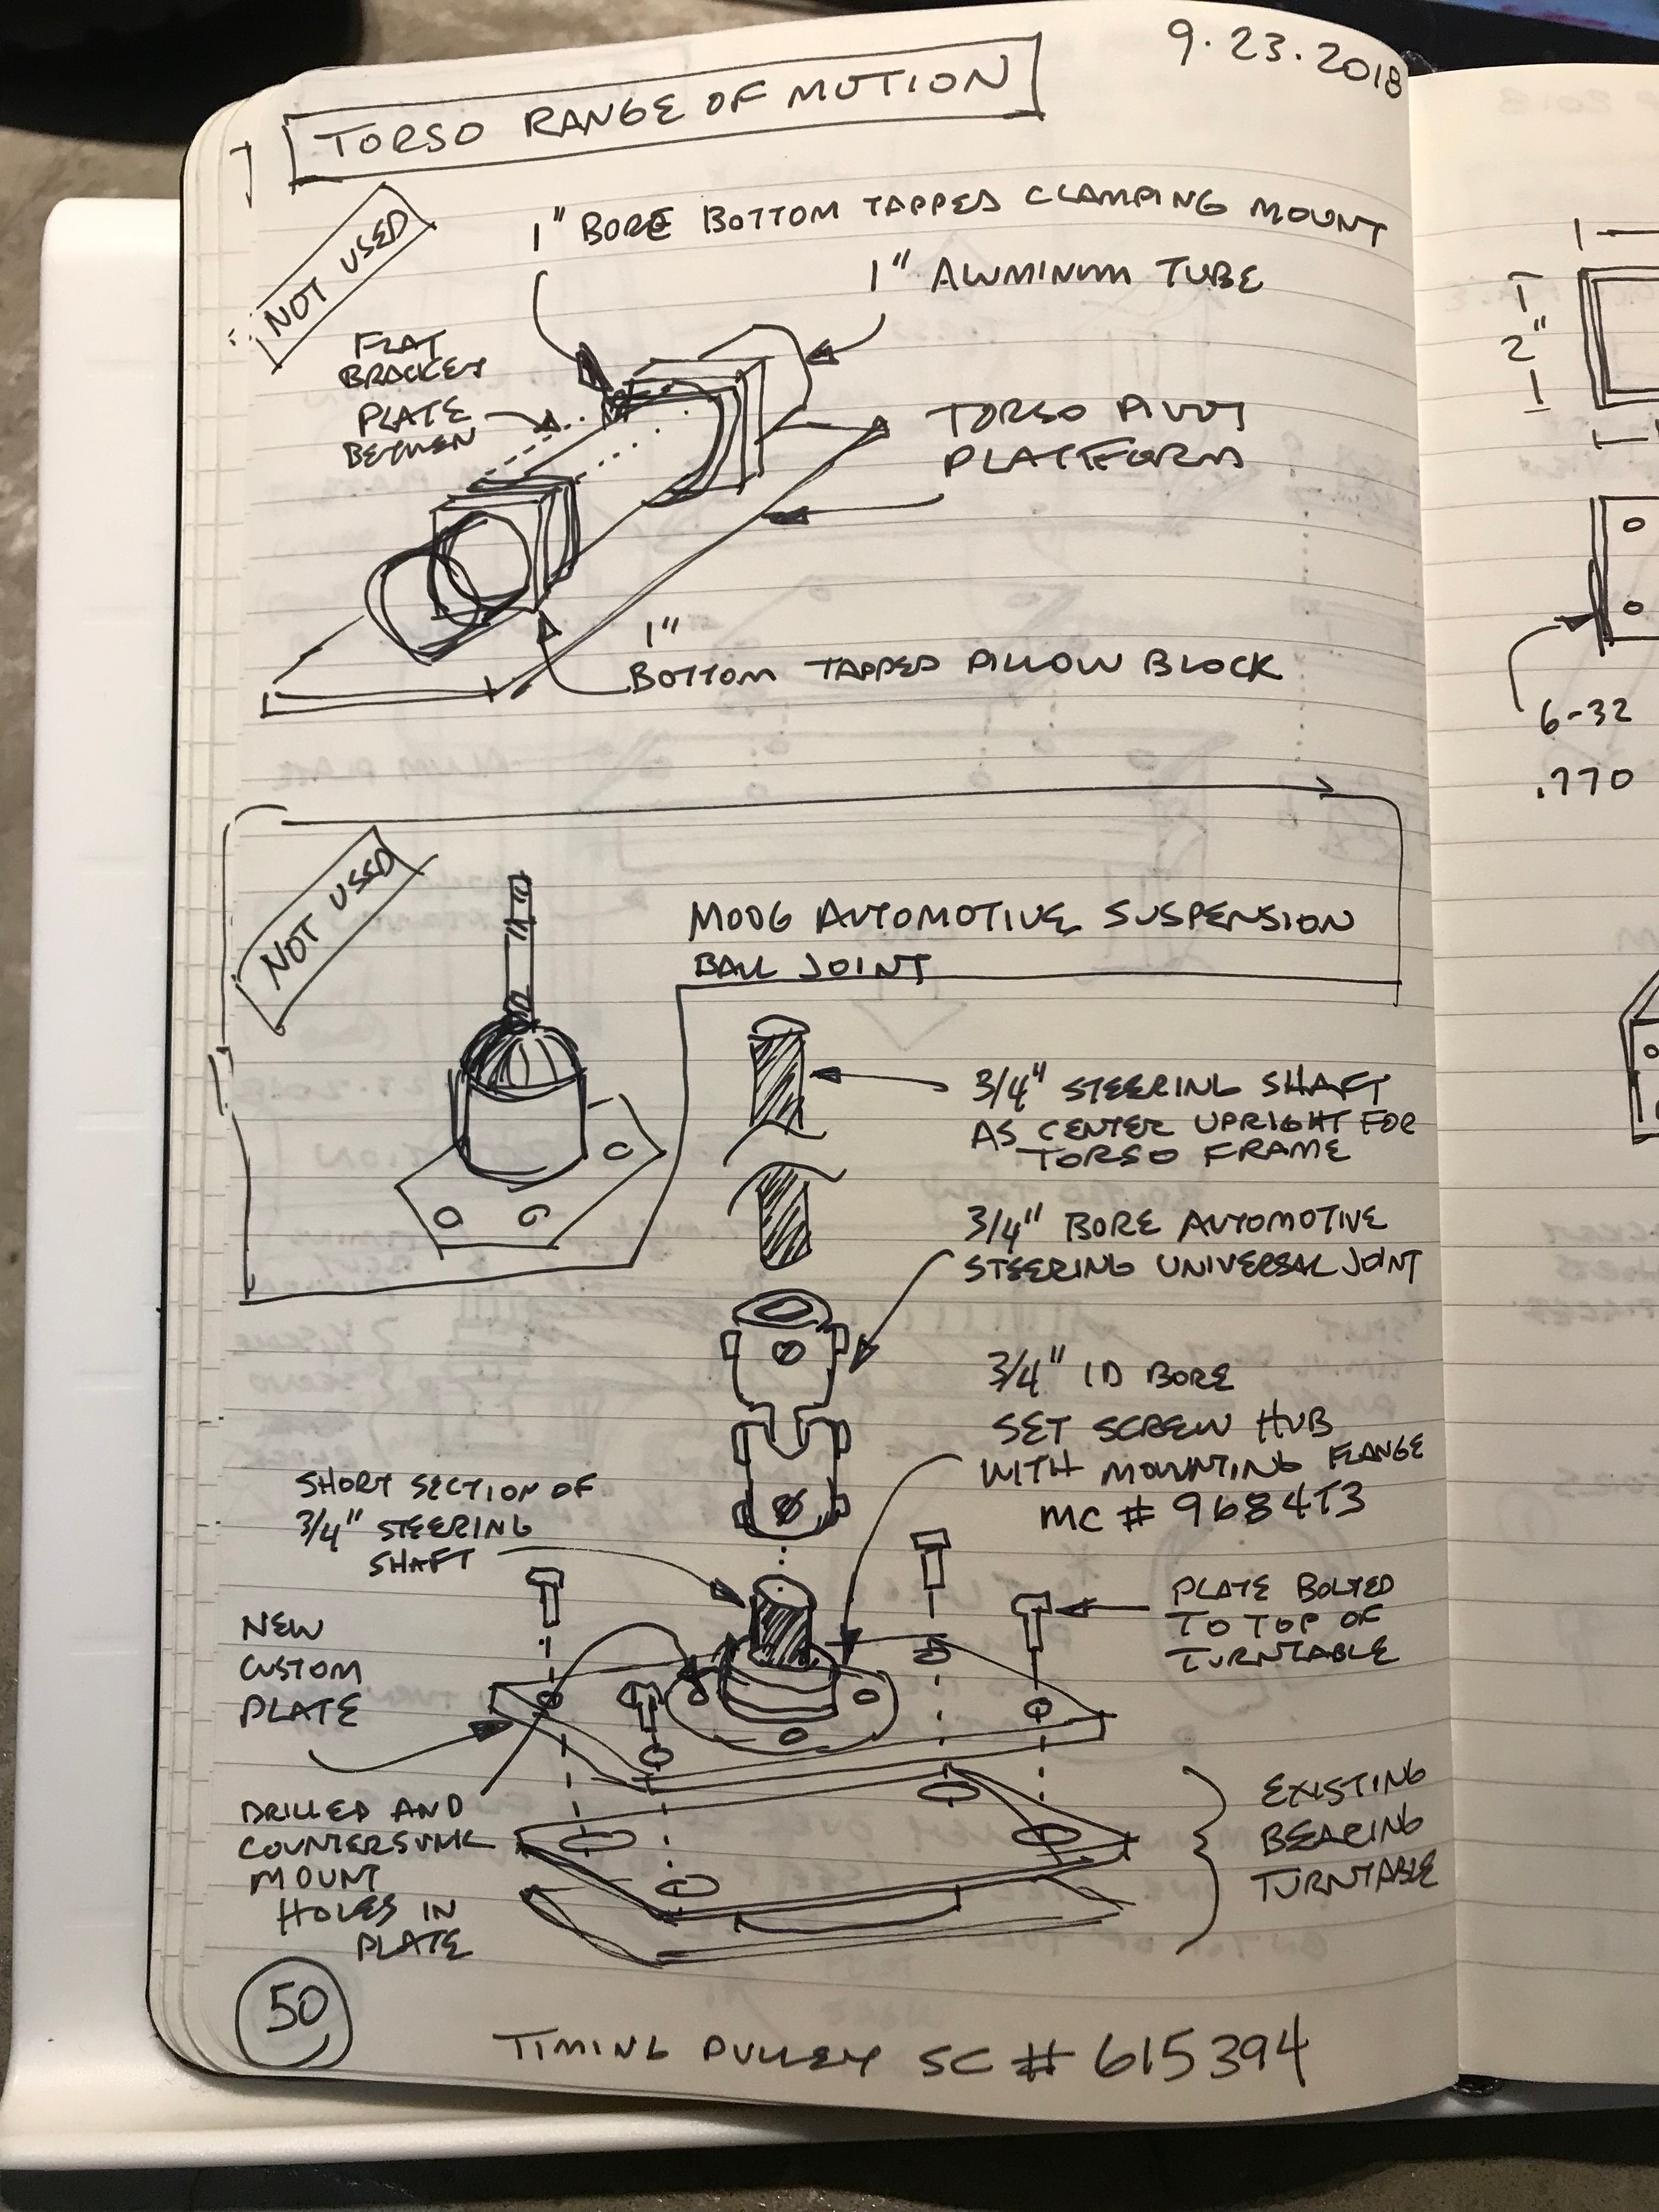 9.23.2018
TORSO RANGE OF MOTION
NOT USED
1" BORE BOTTOM TAPPED CLAMPING MOUNT
1" ALUMINUM TUBE
FLAT
BRACKET
PLATE
BETWEEN
TORSO PIVOT
PLATFORM
1"
BOTTOM TAPPED PILLOW BLOCK
NOT USED
MOOG AUTOMOTIVE SUSPENSION
BALL JOINT
3/4" STEERING SHAFT
AS CENTER UPRIGHT FOR
TORSO FRAME
3/4" BORE AUTOMOTIVE
STEERING UNIVERSAL JOINT
3/4" ID BORE
SET SCREW HUB
WITH MOUNTING FLANGE
MC # 9684T3
SHORT SECTION OF
3/4" STEERING
SHAFT
PLATE BOLTED
TO TOP OF
TURNTABLE
NEW
CUSTOM
PLATE
DRILLED AND
COUNTERSUNK
MOUNT
HOLES IN
PLATE
EXISTING
BEARING
TURNTABLE
50
TIMING PULLEY SC # 615394
2"
6-32
.770